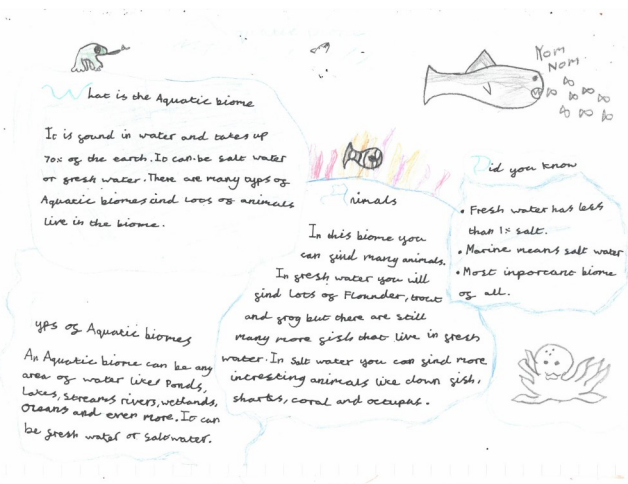 What is the Aquatic biome
It is found in water and takes up
70% of the earth. It can be salt water
or fresh water. There are many typs of
Aquatic biomes and Lots of animals
live in the biome.
Nom
Nom
Animals
In this biome you
can find many animals.
In fresh water you will
find Lots of Flounder, trout
and frog but there are still
many more fish that live in fresh
water. In Salt water you can find more
incresting animals like clown fish,
sharks, coral and octupus.
Did you know
• Fresh water has less
than 1% salt.
• Marine means salt water
• Most inportant biome
of all.
yps of Aquatic biomes
An Aquatic biome can be any
area of water likes Ponds,
Lakes, Streams rivers, wetlands,
Oceans and even more. It can
be fresh water or saltwater.